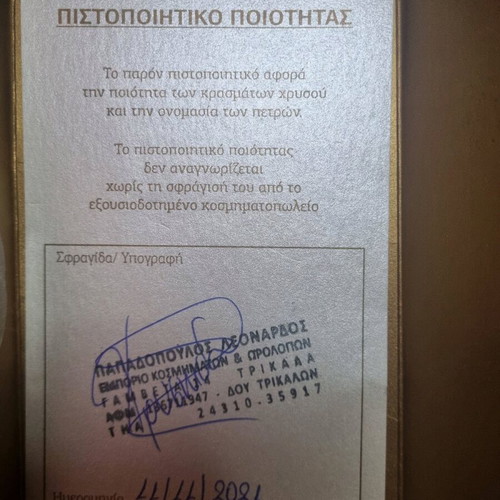 ΠΙΣΤΟΠΟΙΗΤΙΚΟ ΠΟΙΟΤΗΤΑΣ
Το παρόν πιστοποιητικό αφορά
την ποιότητα των κραμάτων χρυσού
και την ονομασία των πετρών.
Το πιστοποιητικό ποιότητας
δεν αναγνωρίζεται
χωρίς τη σφράγισή του από το
εξουσιοδοτημένο κοσμηματοπωλείο
Σφραγίδα/ Υπογραφή
ΠΑΠΑΔΟΠΟΥΛΟΣ ΛΕΟΝΑΡΔΟΣ
ΕΜΠΟΡΙΟ ΚΟΣΜΗΜΑΤΩΝ & ΩΡΟΛΟΓΙΩΝ
ΤΡΙΚΑΛΑ
ΑΦΜ ΔΟΥ ΤΡΙΚΑΛΩΝ
ΤΗΛ 24310.35917
Ημερομηνία 11/11/2021